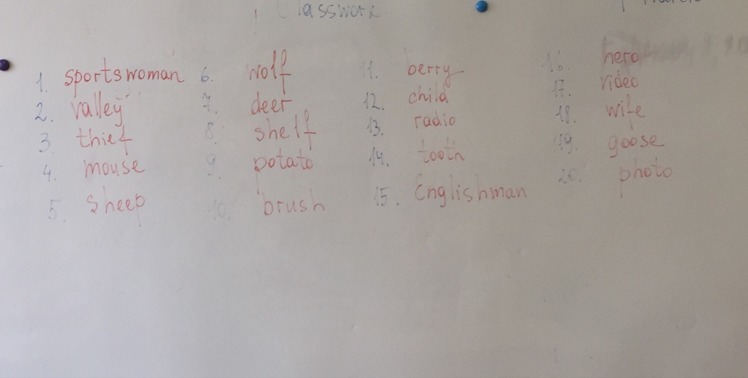 Classwork
1. sportswoman
2. valley
3. thief
4. mouse
5. sheep
6. wolf
7. deer
8. shelf
9. potato
10. brush
11. berry
12. child
13. radio
14. tooth
15. Englishman
16. hero
17. video
18. wife
19. goose
20. photo